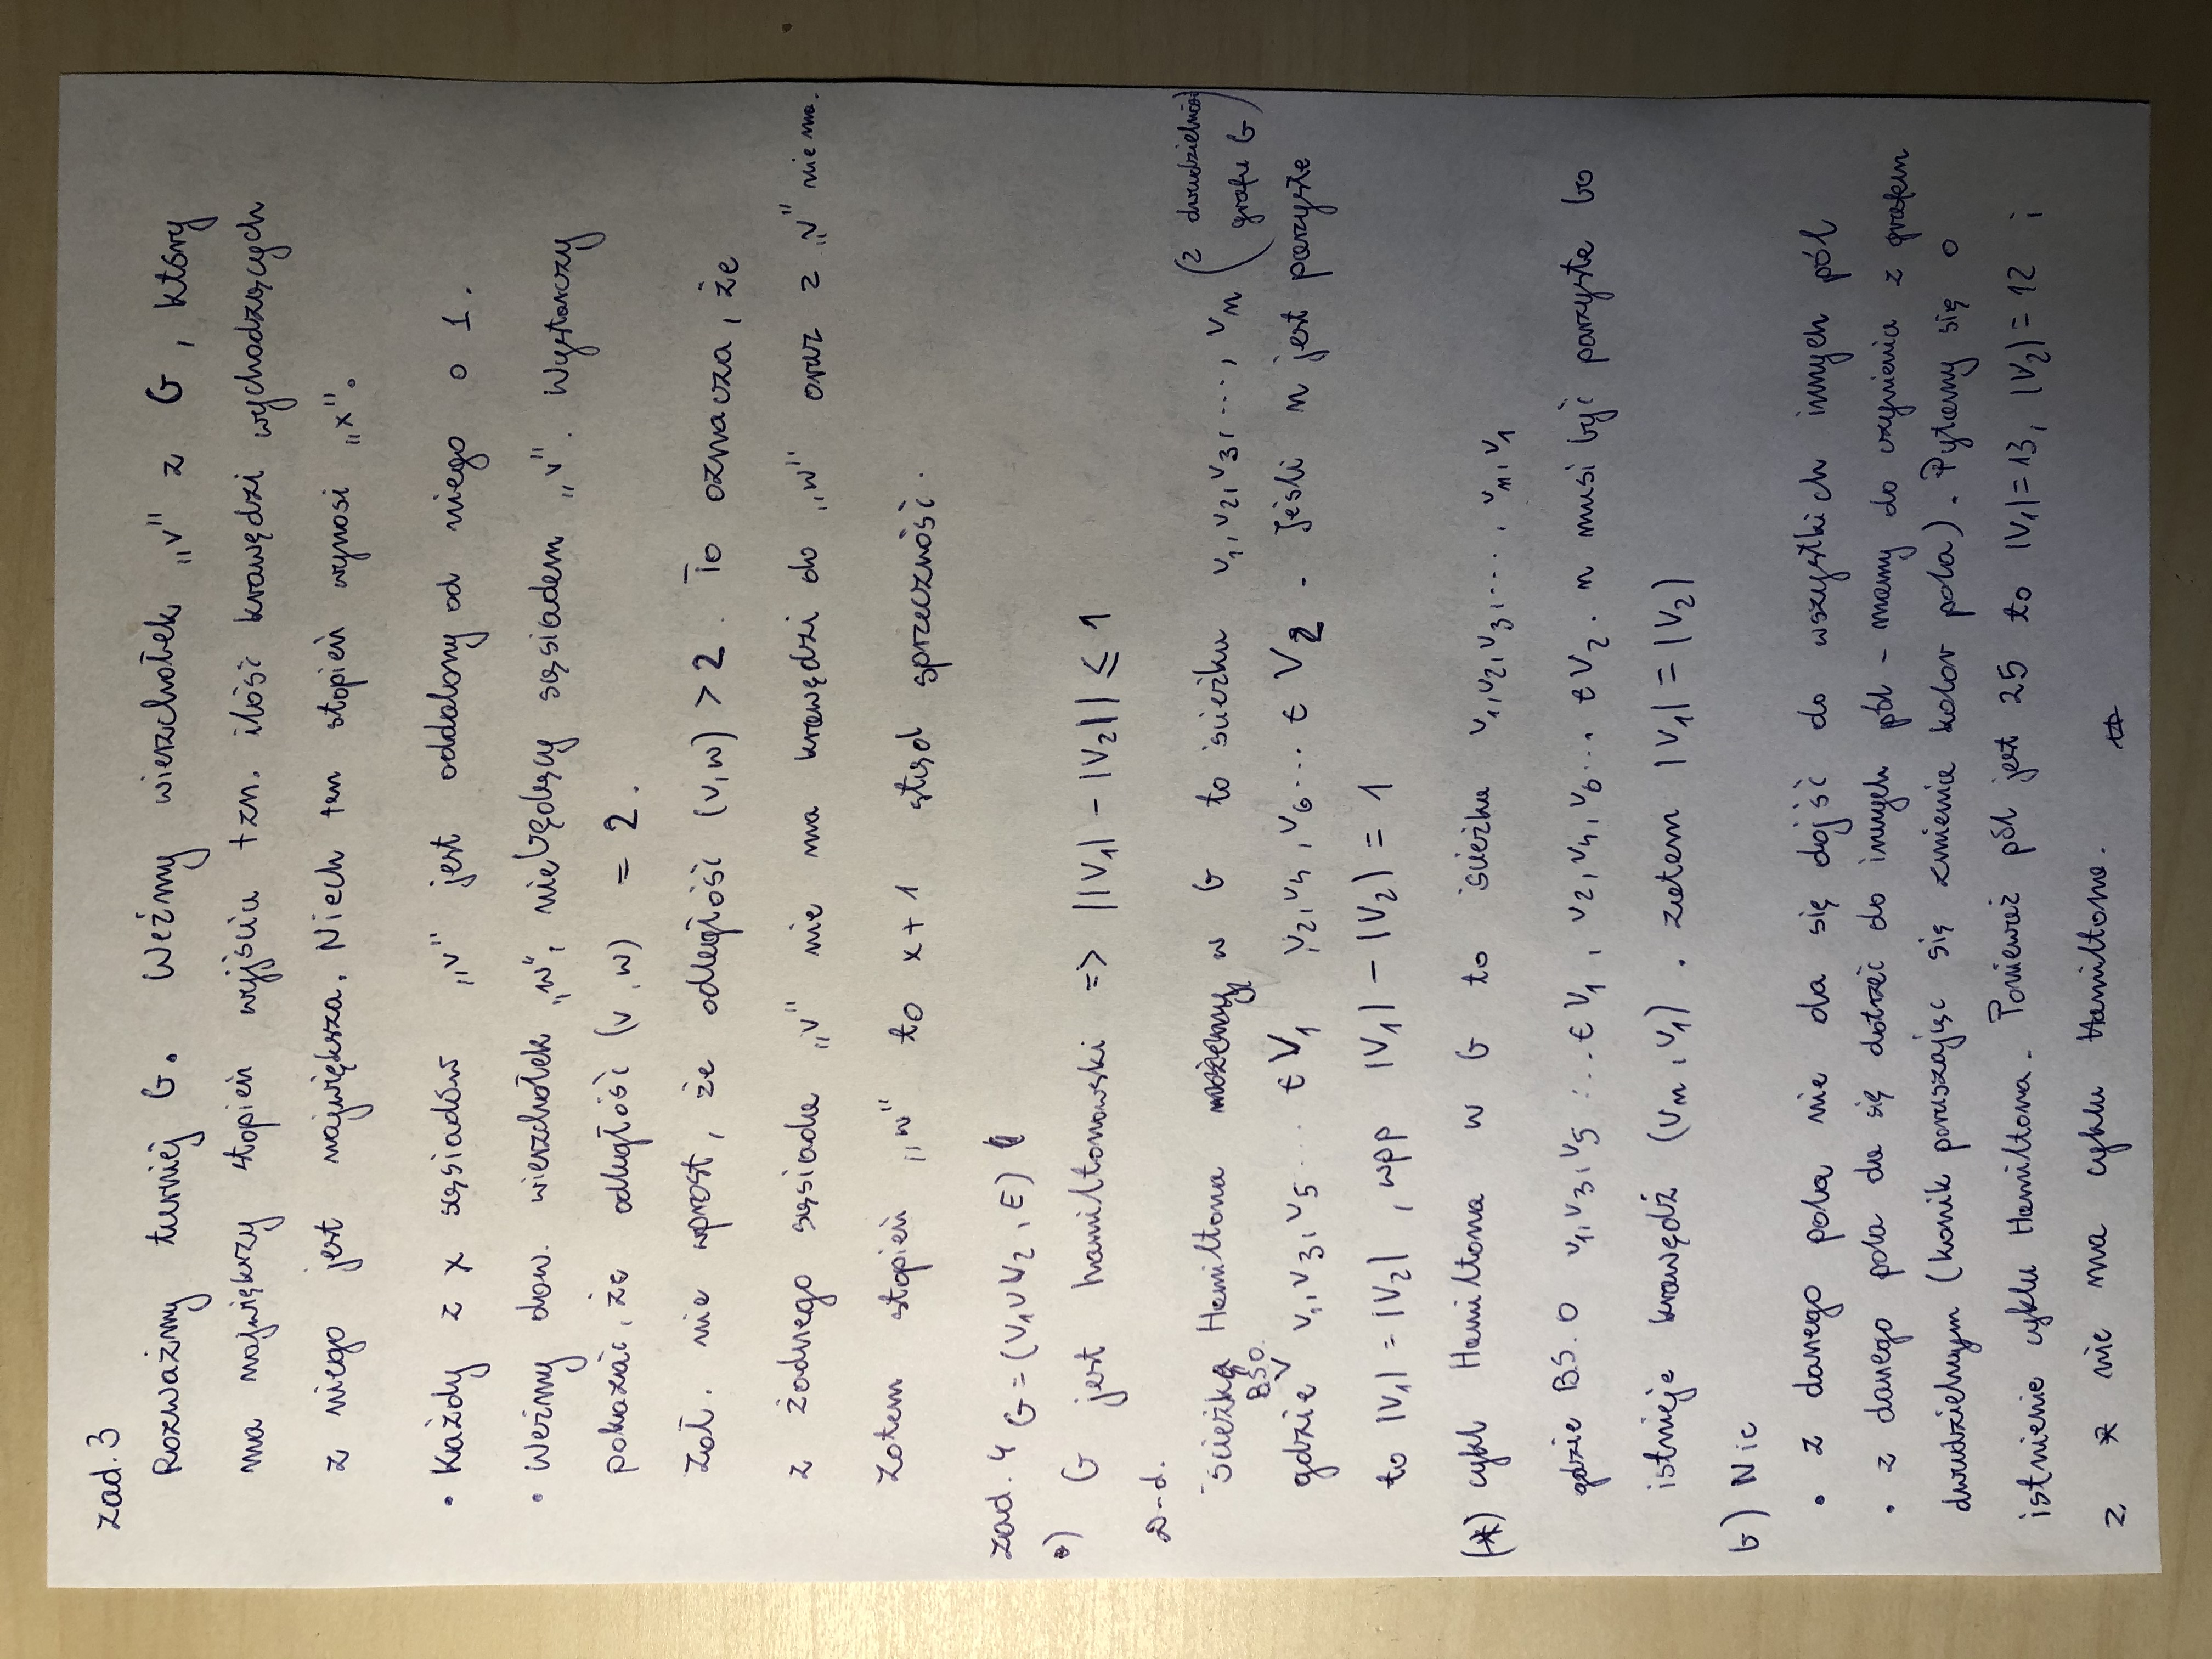 zad. 3
Rozważmy turniej G. Weźmy wierzchołek „v" z G, który
ma największy stopień wyjścia tzn. ilość krawędzi wychodzących
z niego jest największa. Niech ten stopień wynosi „x".
• Każdy z x sąsiadów „v" jest oddalony od niego o 1.
• Weźmy dow. wierzchołek „w", niebędący sąsiadem „v". Wystarczy
pokazać, że odległość (v, w) = 2.
Zał. nie wprost, że odległość (v,w) > 2. To oznacza, że
z żadnego sąsiada „v" nie ma krawędzi do „w" oraz z „v" nie ma.
Zatem stopień „w" to x+1 stąd sprzeczność.
zad. 4 G = (V₁∪V₂, E)
a) G jest hamiltonowski => ||V₁| - |V₂|| ≤ 1
D-d.
ścieżka Hamiltona w G to ścieżka v₁, v₂, v₃, ..., vₙ (z dwudzielności grafu G)
gdzie BSO v₁, v₃, v₅ ... ∈ V₁ , v₂, v₄, v₆ ... ∈ V₂. Jeśli n jest parzyste
to |V₁| = |V₂|, wpp |V₁| - |V₂| = 1
(*) cykl Hamiltona w G to ścieżka v₁, v₂, v₃, ..., vₙ, v₁
gdzie B.S.O v₁, v₃, v₅ ... ∈ V₁, v₂, v₄, v₆ ... ∈ V₂. n musi być parzyste bo
istnieje krawędź (vₙ, v₁). zatem |V₁| = |V₂|
b) Nie
• z danego pola nie da się dojść do wszystkich innych pól
• z danego pola da się dotrzeć do innych pól - mamy do czynienia z grafem
dwudzielnym (konik poruszając się zmienia kolor pola). Pytamy się o
istnienie cyklu Hamiltona. Ponieważ pól jest 25 to |V₁| = 13, |V₂| = 12 i
z * nie ma cyklu Hamiltona.